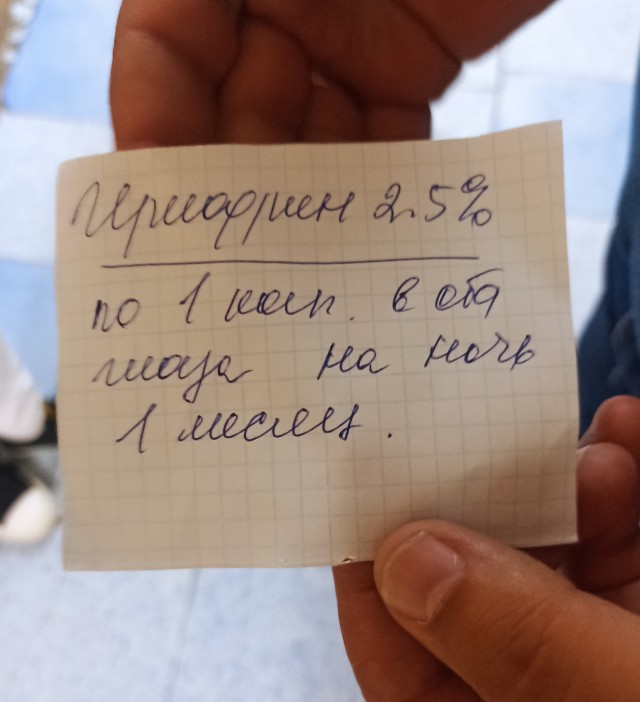 Ирифрин 2.5%
по 1 кап. в оба
глаза на ночь
1 месяц.